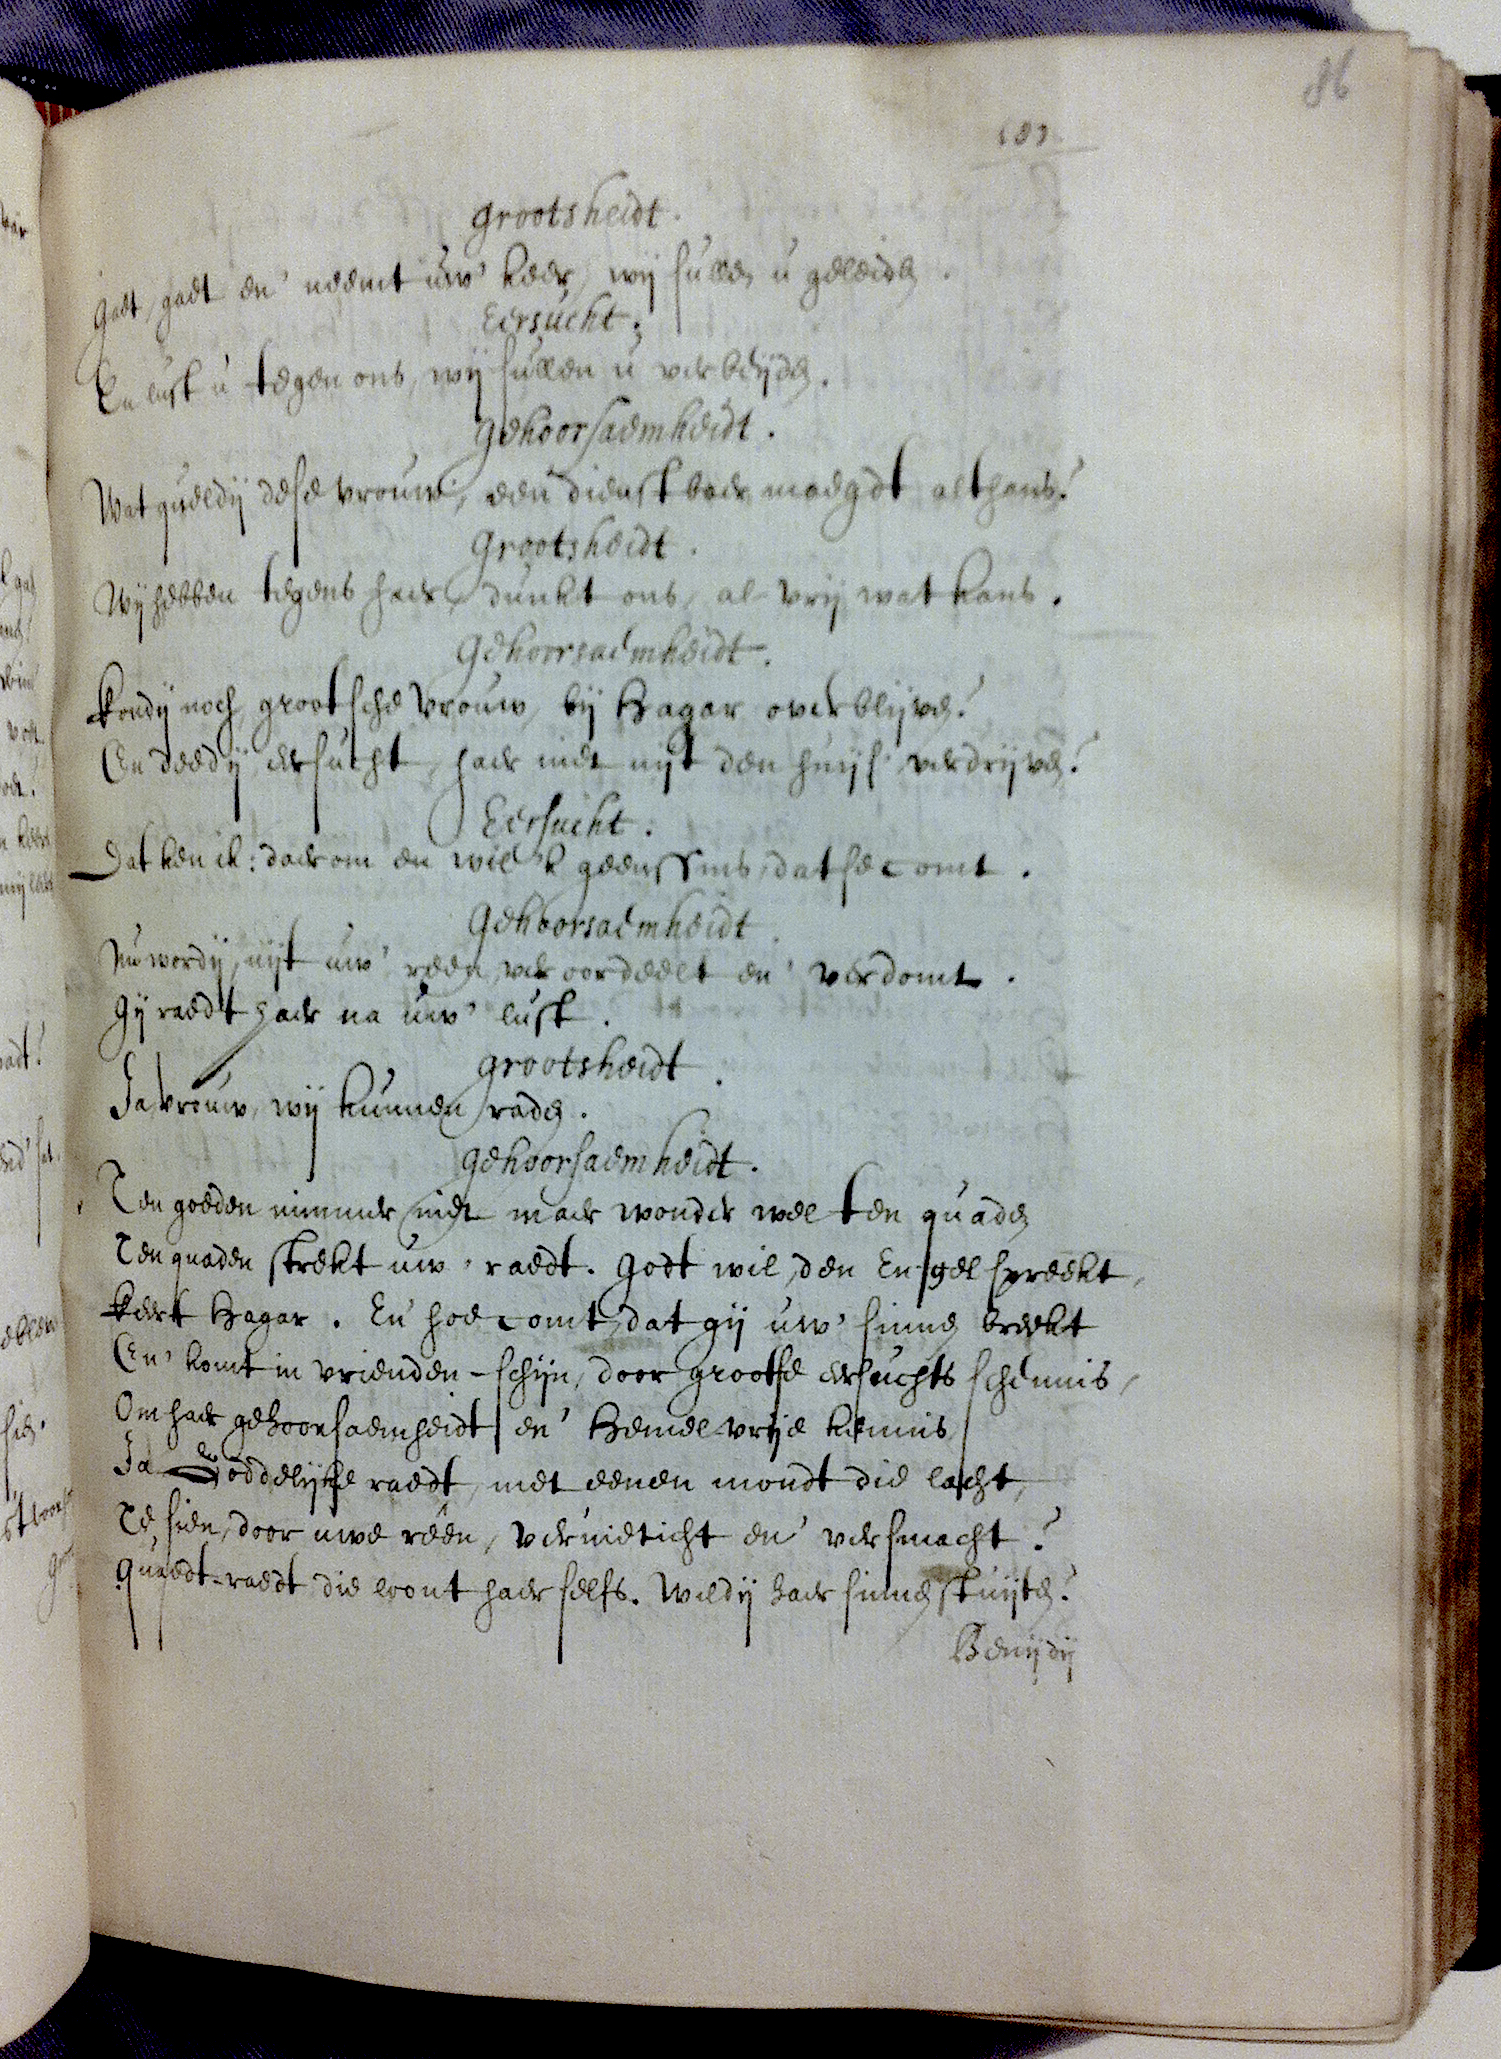 86
181
grootsheidt.
gaet, gaet en' neemt uw' keer, wij sullen u geleiden.
Eersucht.
En lust u tegen ons, wij sullen u verbeijden.
gehoorsaemheidt.
Wat queldij dese vrouw, een dienstbaer maegdt althans?
grootsheidt.
Wij hebben tegens haer, dunkt ons, al vrij wat kans.
gehoorsaemheidt.
kondij noch, grootsche vrouw, bij Hagar overblijven?
En deedij, eersucht, haer niet uijt den huijs verdrijven?
Eersucht.
Dat ken ik: daerom en wil 'k geenssins, dat se comt.
gehoorsaemheidt.
Nu wordij, uijt uw' reen, veroordeelt en' verdomt.
gij raedt haer na uw' lust.
grootsheidt.
Ja vrouw, wij kunnen raden.
gehoorsaemheidt.
Ten goeden nimmer niet maer wonder wel ten quaden
Ten quaden strekt uw' raedt. godt wil, den Engel spreekt,
keert Hagar. En hoe comt, dat gij uw' sinnen breekt
En' komt in vrienden-schijn, door grootse eersuchts schennis,
Om haer gehoorsaemheidt en' Hemel-vrije kennis
Ja goddelijke raedt, met eenen mondt die lacht,
Te sien, door uwe reen, vernieticht en' versmacht?
quaedt-raedt die loont haer selfs. Wildij haer sinnen stuijten?
Benijdij